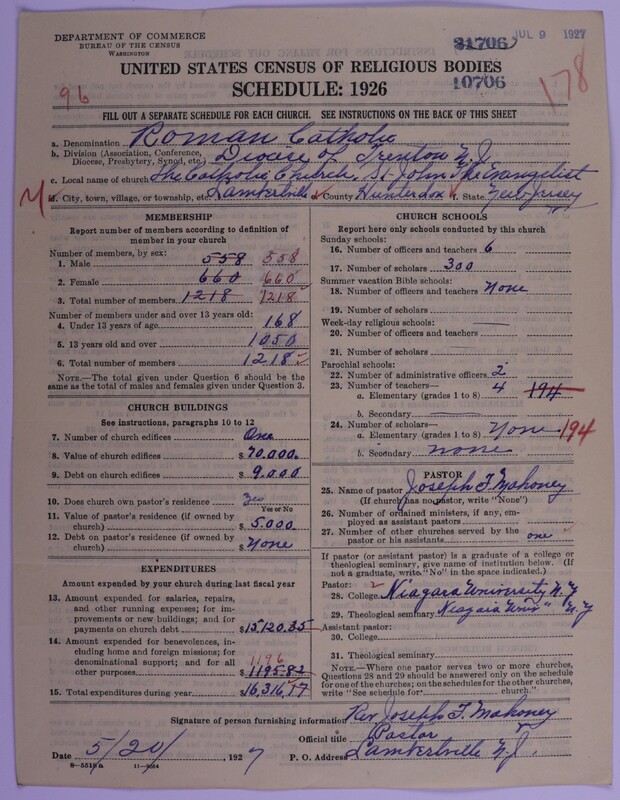 DEPARTMENT OF COMMERCE
BUREAU OF THE CENSUS
WASHINGTON
31706
JUL 9 1927
UNITED STATES CENSUS OF RELIGIOUS BODIES
10706
SCHEDULE: 1926
96
178
FILL OUT A SEPARATE SCHEDULE FOR EACH CHURCH. SEE INSTRUCTIONS ON THE BACK OF THIS SHEET
a. Denomination Roman Catholic
b. Division (Association, Conference, Diocese, Presbytery, Synod, etc.) Diocese of Trenton N.J.
c. Local name of church The Catholic Church, St. John The Evangelist
d. City, town, village, or township, etc. Lambertville e. County Hunterdon f. State New Jersey
MEMBERSHIP
Report number of members according to definition of member in your church
Number of members, by sex:
1. Male 558 558
2. Female 660 660
3. Total number of members 1218 1218
Number of members under and over 13 years old:
4. Under 13 years of age 168
5. 13 years old and over 1050
6. Total number of members 1218
NOTE.—The total given under Question 6 should be the same as the total of males and females given under Question 3.
CHURCH BUILDINGS
See instructions, paragraphs 10 to 12
7. Number of church edifices One
8. Value of church edifices $ 70.000.
9. Debt on church edifices $ 9.000
10. Does church own pastor's residence Yes
Yes or No
11. Value of pastor's residence (if owned by church) $ 5.000
12. Debt on pastor's residence (if owned by church) $ None
EXPENDITURES
Amount expended by your church during last fiscal year
13. Amount expended for salaries, repairs, and other running expenses; for improvements or new buildings; and for payments on church debt $ 15120.35
14. Amount expended for benevolences, including home and foreign missions; for denominational support; and for all other purposes 1196 $ 1195.82
15. Total expenditures during year $ 16,316.17
CHURCH SCHOOLS
Report here only schools conducted by this church
Sunday schools:
16. Number of officers and teachers 6
17. Number of scholars 300
Summer vacation Bible schools:
18. Number of officers and teachers None
19. Number of scholars
Week-day religious schools:
20. Number of officers and teachers
21. Number of scholars
Parochial schools:
22. Number of administrative officers 2
23. Number of teachers—
a. Elementary (grades 1 to 8) 4 194
b. Secondary
24. Number of scholars—
a. Elementary (grades 1 to 8) None 194
b. Secondary none
PASTOR
25. Name of pastor Joseph F. Mahoney
(If church has no pastor, write "None")
26. Number of ordained ministers, if any, employed as assistant pastors
27. Number of other churches served by the pastor or his assistants one
If pastor (or assistant pastor) is a graduate of a college or theological seminary, give name of institution below. (If not a graduate, write "No" in the space indicated.)
Pastor:
28. College Niagara University N.Y
29. Theological seminary Niagara Univ" N.Y
Assistant pastor:
30. College
31. Theological seminary
NOTE.—Where one pastor serves two or more churches, Questions 28 and 29 should be answered only on the schedule for one of the churches; on the schedules for the other churches, write "See schedule for church."
Signature of person furnishing information Rev. Joseph F. Mahoney
Official title Pastor
Date 5/20/, 1927 P. O. Address Lambertville N.J.
8—5518a 11—9164